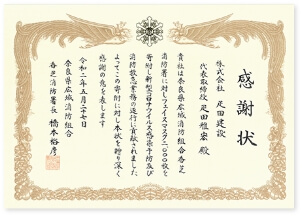 感謝状
株式会社 疋田建設
代表取締役 疋田雅宏 殿
貴社は奈良県広域消防組合香芝
消防署に対しフェイスマスク二〇〇〇枚を
寄附し新型コロナウイルス感染予防及び
消防救急業務の遂行に貢献されました
よってこの寄附に対し本状を贈り深く
感謝の意を表します
令和二年五月二十七日
奈良県広域消防組合
香芝消防署長 橋本裕彦